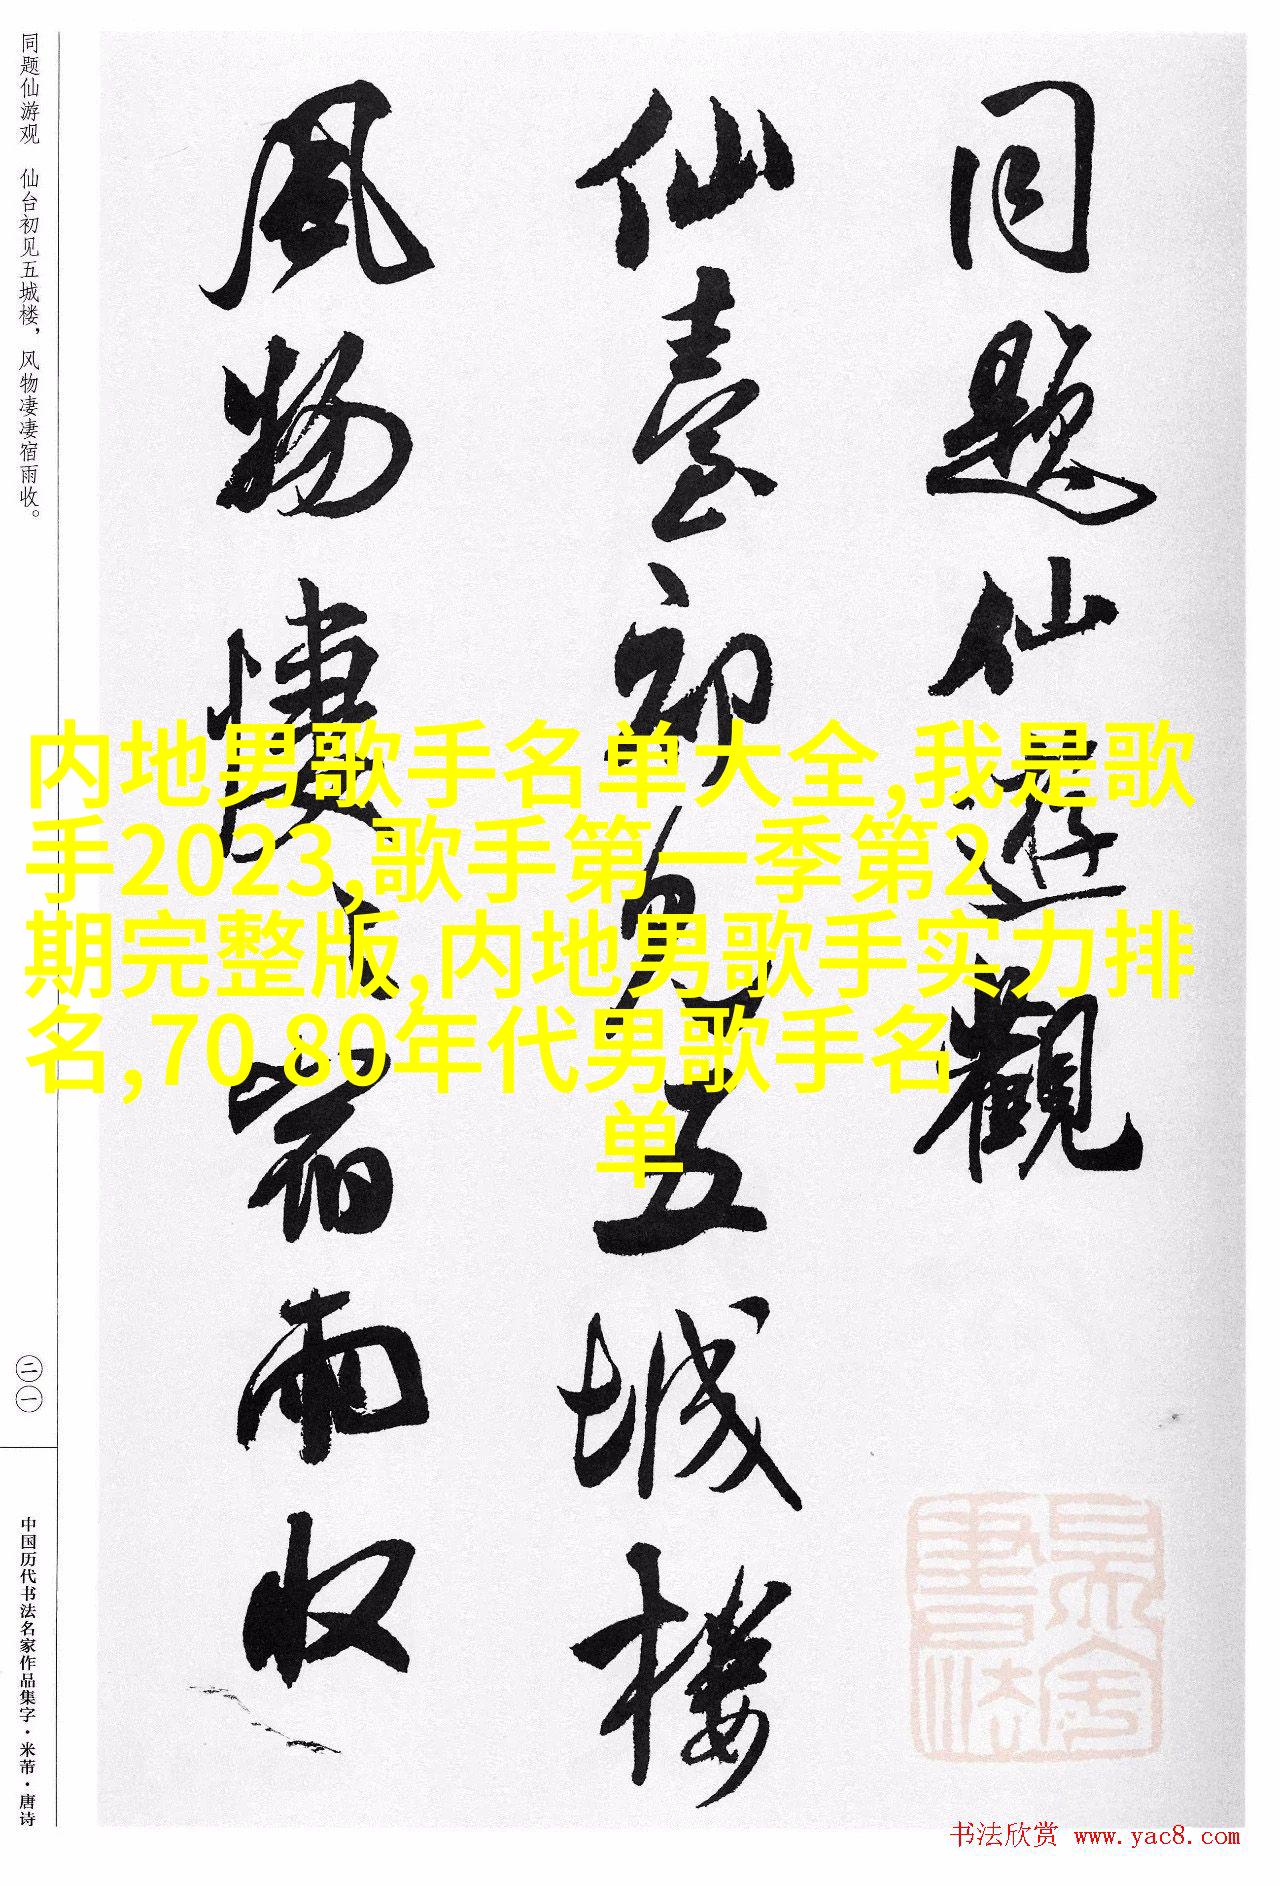 同題仙遊觀
仙臺初見五城樓
風物淒淒宿雨收
内地男歌手名单大全,我是歌
手2023,歌手第一季第2
期完整版,内地男歌手实力排
名,70 80年代男歌手名
单
同题仙游观 仙台初见五城楼，风物凄凄宿雨收。
二一
中国历代书法名家作品集字·米芾·唐诗
书法欣赏 www.yac8.com